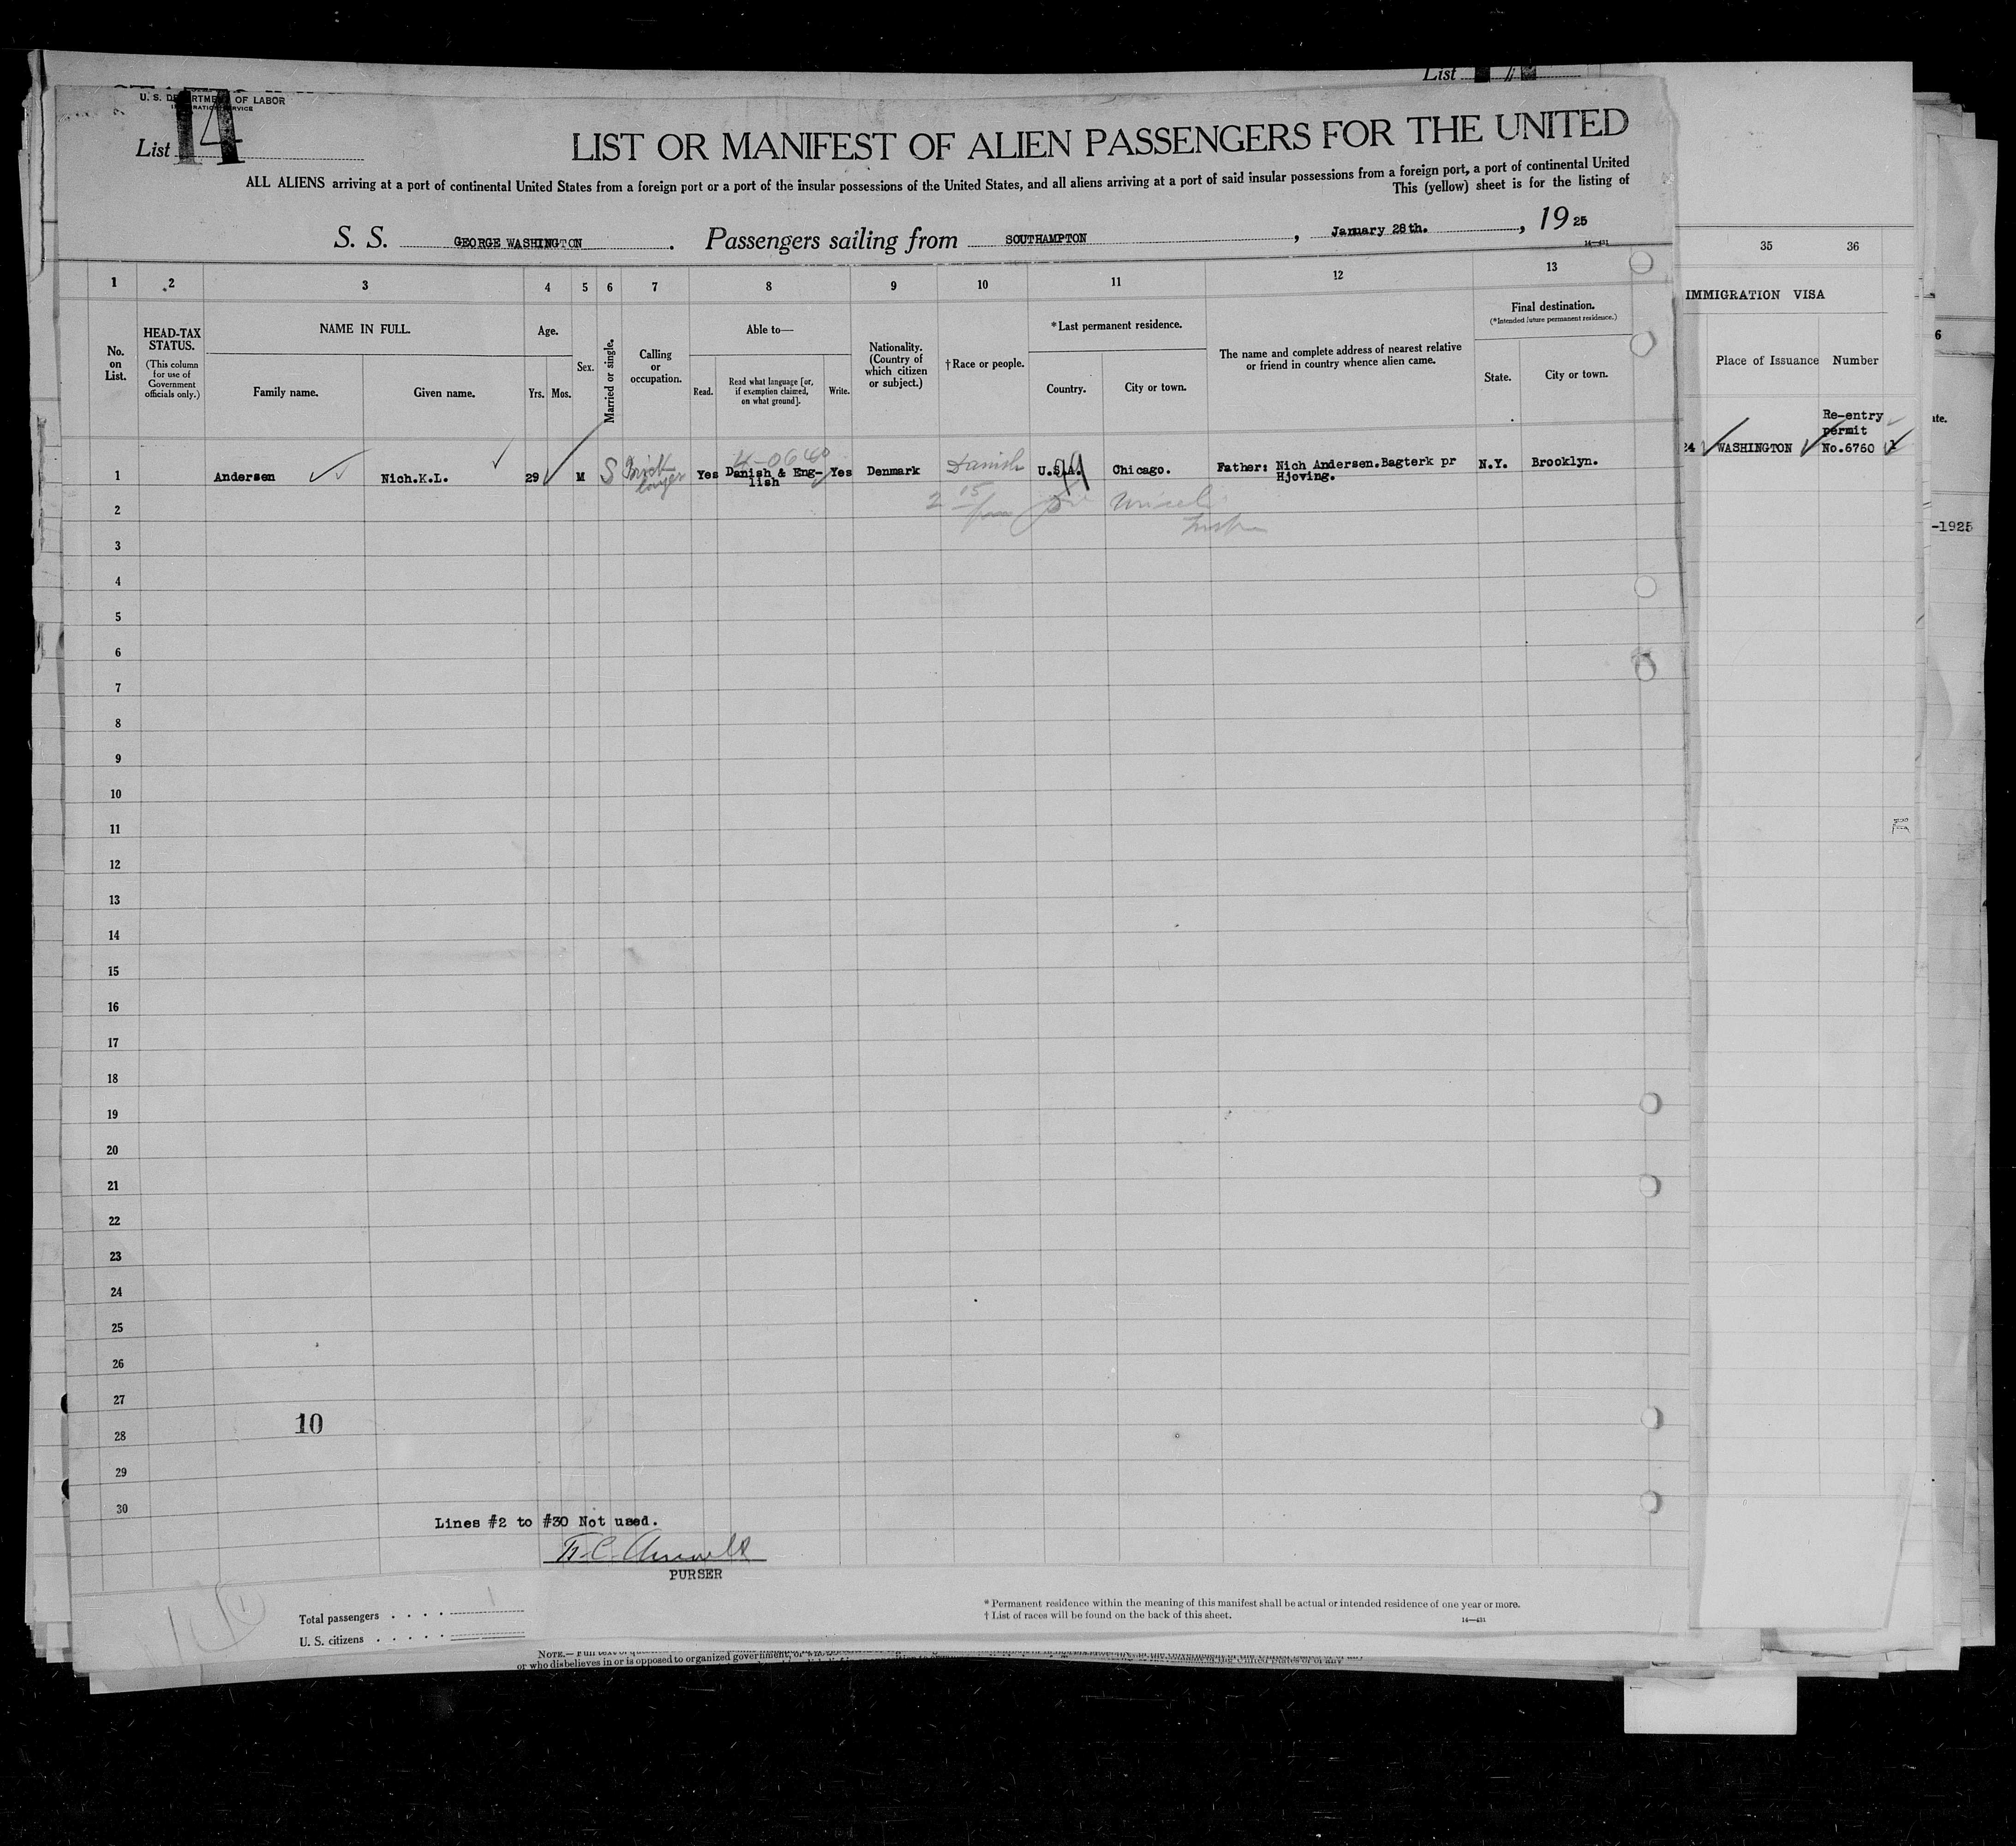 List
U. S. DEPARTMENT OF LABOR
IMMIGRATION SERVICE
List 14
LIST OR MANIFEST OF ALIEN PASSENGERS FOR THE UNITED
ALL ALIENS arriving at a port of continental United States from a foreign port or a port of the insular possessions of the United States, and all aliens arriving at a port of said insular possessions from a foreign port, a port of continental United
This (yellow) sheet is for the listing of
S. S. GEORGE WASHINGTON . Passengers sailing from SOUTHAMPTON , January 28th. , 1925
14—431
1 2 3 4 5 6 7 8 9 10 11 12 13 35 36
No. on List.
HEAD-TAX STATUS.
(This column for use of Government officials only.)
NAME IN FULL.
Family name. Given name.
Age.
Yrs. Mos.
Sex.
Married or single.
Calling or occupation.
Able to—
Read. Read what language [or, if exemption claimed, on what ground]. Write.
Nationality. (Country of which citizen or subject.)
†Race or people.
*Last permanent residence.
Country. City or town.
The name and complete address of nearest relative or friend in country whence alien came.
Final destination.
(*Intended future permanent residence.)
State. City or town.
IMMIGRATION VISA
Place of Issuance Number
6
ate.
Re-entry
permit
24 WASHINGTON No.6760
1 Andersen Nich.K.L. 29 M S Brick layer Yes Danish & Eng-lish Yes Denmark Danish U.S.A. Chicago. Father: Nich Andersen.Bagterk pr Hjoving. N.Y. Brooklyn.
2
-1925
3
4
5
6
7
8
9
10
11
12
13
14
15
16
17
18
19
20
21
22
23
24
25
26
27
10
28
29
30
Lines #2 to #30 Not used.
PURSER
Total passengers . . . . 1
U. S. citizens . . . . .
* Permanent residence within the meaning of this manifest shall be actual or intended residence of one year or more.
† List of races will be found on the back of this sheet.
14—431
or who disbelieves in or is opposed to organized government, or